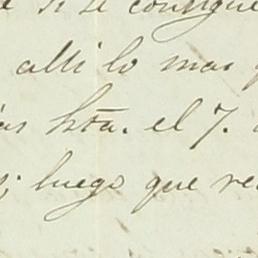 si se consigue
alli lo mas
hta. el 7.
luego que re